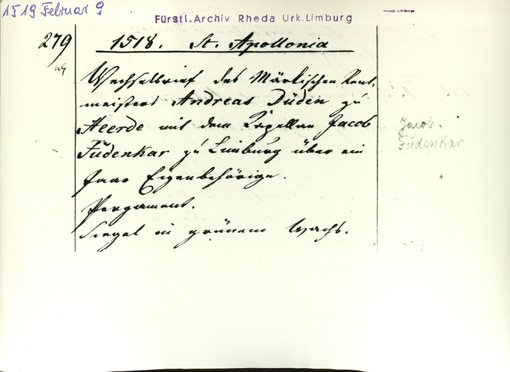 1519 Februar 9
Fürstl. Archiv Rheda Urk. Limburg
279
1518. St. Apollonia
Wechselbrief des Märkischen Rent-
meisters Andreas Düden zu
Heerde mit dem Capellan Jacob
Füdenkar zu Limburg über ein
Paar Eigenbehörige.
Pergament.
Siegel in grünem Wachs.
Jacob
Füdenkar